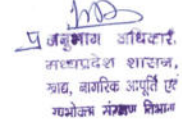 अनुभाग अधिकारी,
मध्यप्रदेश शासन,
खाद्य, नागरिक आपूर्ति एवं
उपभोक्ता संरक्षण विभाग